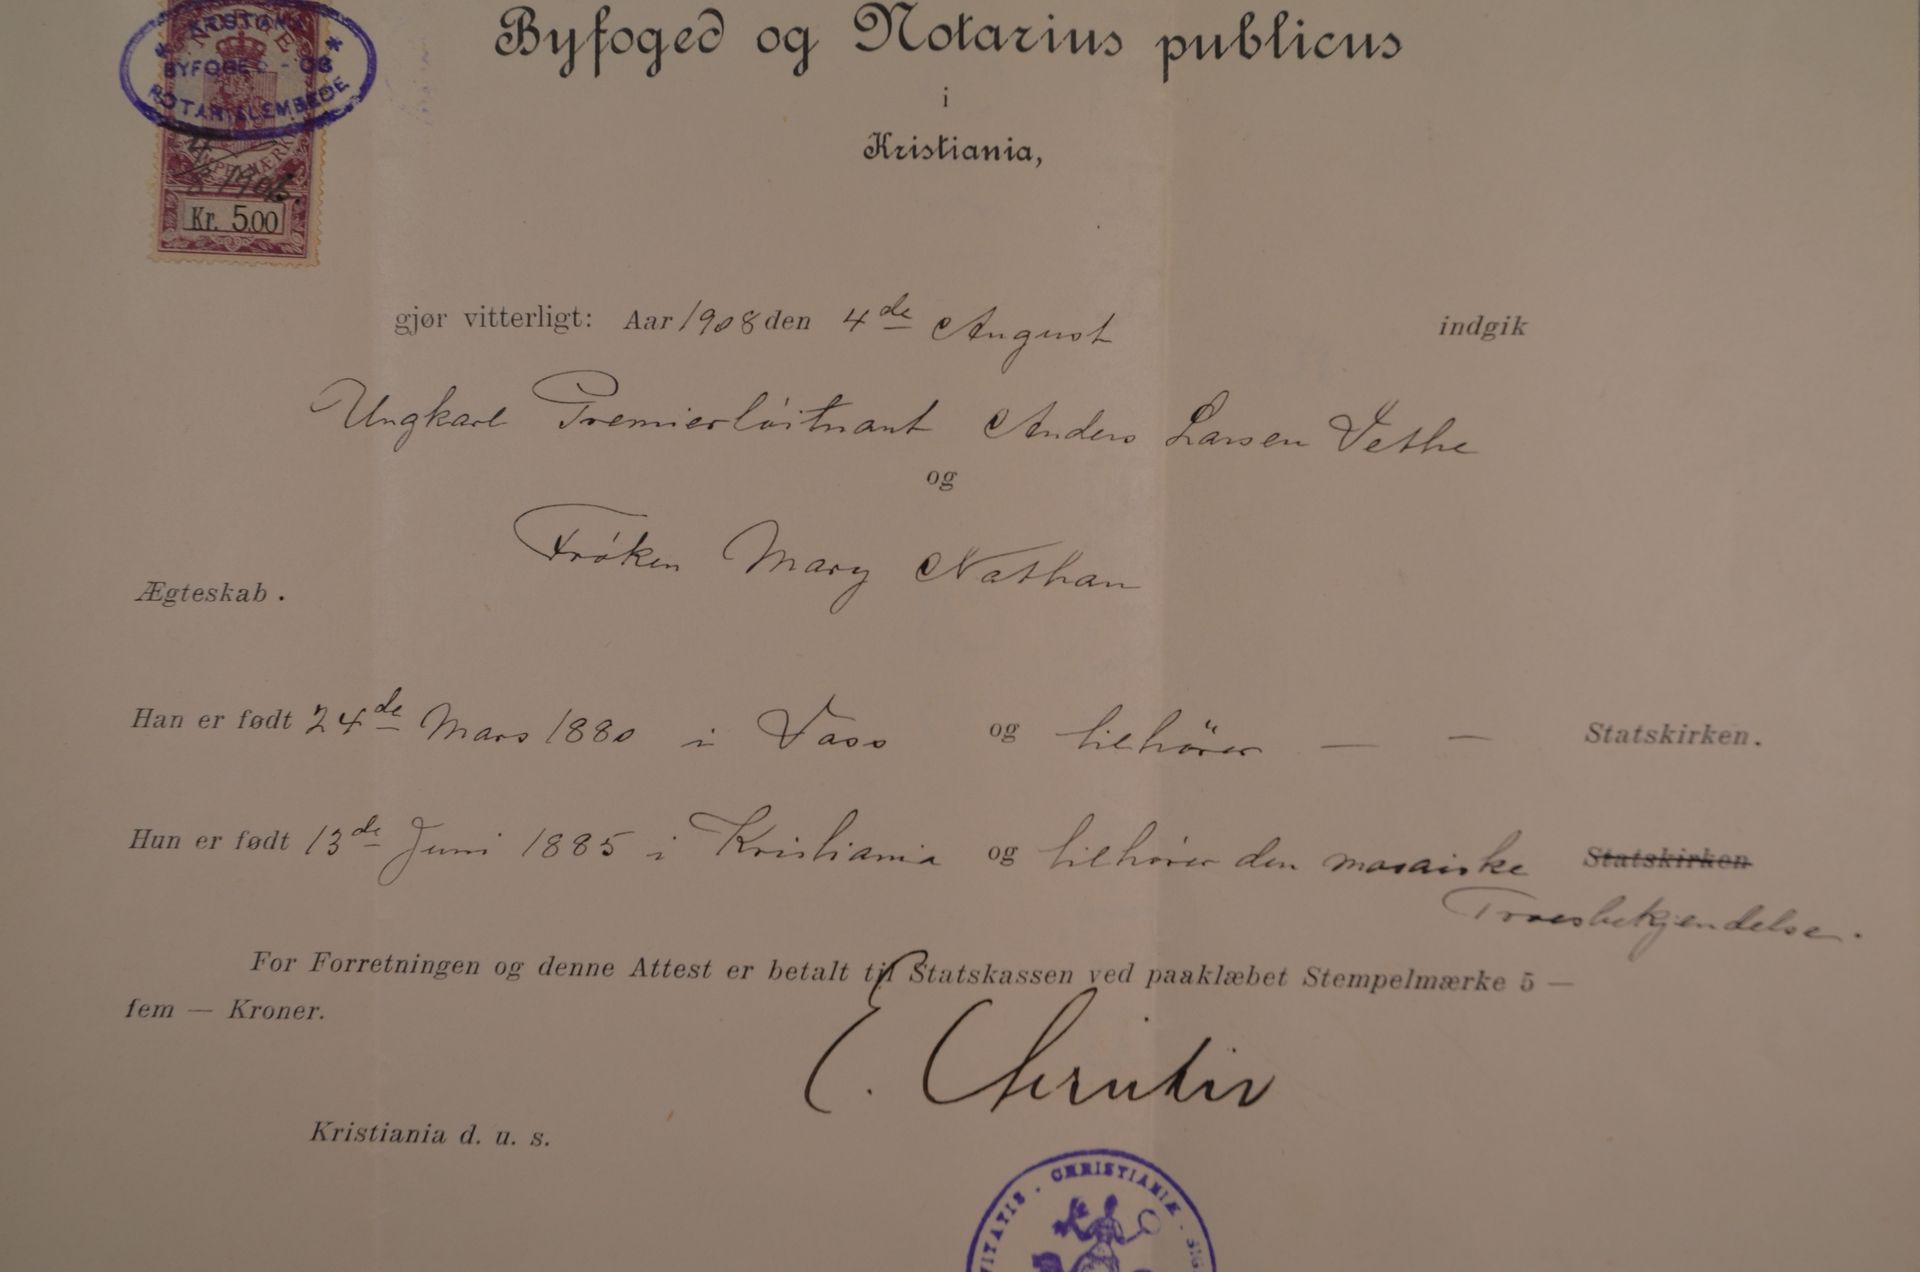 Byfoged og Notarius publicus
i
Kristiania,
BYFOGED - OG
NOTARIALEMBEDE
NORGE
Kr. 5.00
gjør vitterligt: Aar 1908 den 4de August indgik
Ungkarl Premierløitnant Anders Larsen Vethe
og
Frøken Mary Nathan
Ægteskab.
Han er født 24de Mars 1880 i Voss og tilhører — — Statskirken.
Hun er født 13de Juni 1885 i Kristiania og tilhører den mosaiske Statskirken
Troesbekjendelse.
For Forretningen og denne Attest er betalt til Statskassen ved paaklæbet Stempelmærke 5 —
fem — Kroner.
E.
Kristiania d. u. s.
CHRISTIANIÆ